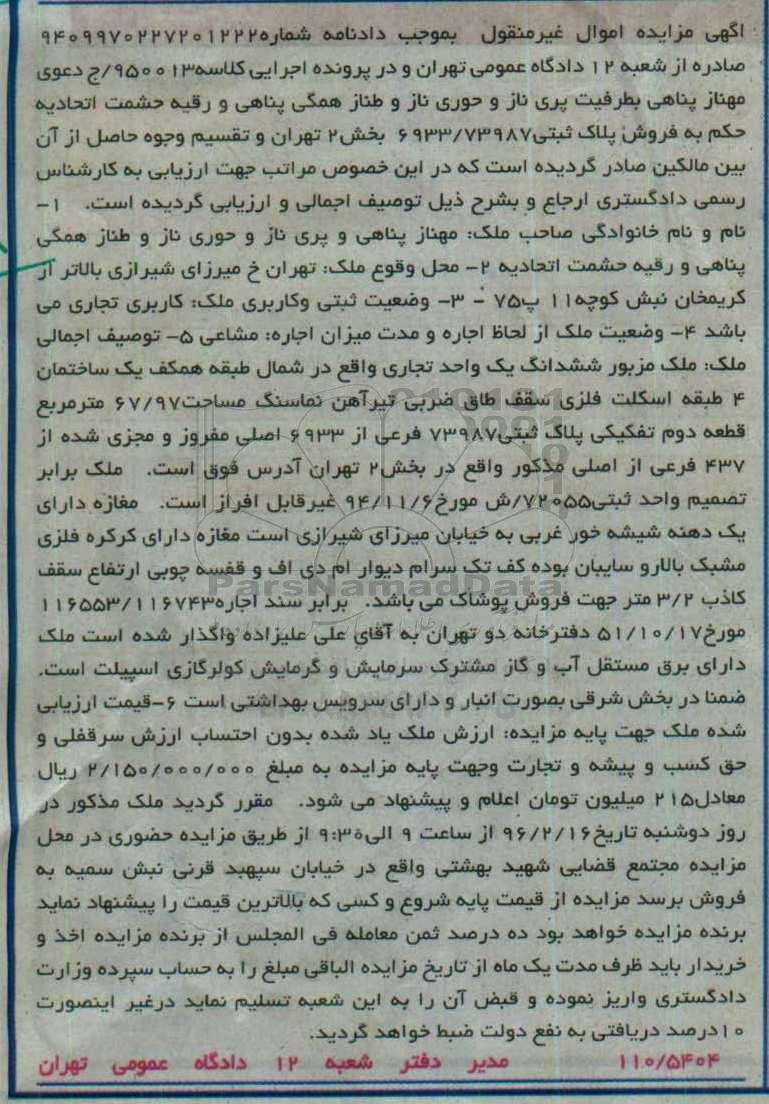 اگهی مزایده اموال غیرمنقول بموجب دادنامه شماره۹۴۰۹۹۷۰۲۲۷۲۰۱۲۲۲
صادره از شعبه ۱۲ دادگاه عمومی تهران و در پرونده اجرایی کلاسه۹۵۰۰۱۳/ج دعوی
مهناز پناهی بطرفیت پری ناز و حوری ناز و طناز همگی پناهی و رقیه حشمت اتحادیه
حکم به فروش پلاک ثبتی۶۹۳۳/۷۳۹۸۷ بخش۲ تهران و تقسیم وجوه حاصل از آن
بین مالکین صادر گردیده است که در این خصوص مراتب جهت ارزیابی به کارشناس
رسمی دادگستری ارجاع و بشرح ذیل توصیف اجمالی و ارزیابی گردیده است. ۱-
نام و نام خانوادگی صاحب ملک: مهناز پناهی و پری ناز و حوری ناز و طناز همگی
پناهی و رقیه حشمت اتحادیه ۲- محل وقوع ملک: تهران خ میرزای شیرازی بالاتر از
کریمخان نبش کوچه۱۱ پ۷۵ - ۳- وضعیت ثبتی وکاربری ملک: کاربری تجاری می
باشد ۴- وضعیت ملک از لحاظ اجاره و مدت میزان اجاره: مشاعی ۵- توصیف اجمالی
ملک: ملک مزبور ششدانگ یک واحد تجاری واقع در شمال طبقه همکف یک ساختمان
۴ طبقه اسکلت فلزی سقف طاق ضربی تیرآهن نماسنگ مساحت۶۷/۹۷ مترمربع
قطعه دوم تفکیکی پلاگ ثبتی۷۳۹۸۷ فرعی از ۶۹۳۳ اصلی مفروز و مجزی شده از
۴۳۷ فرعی از اصلی مذکور واقع در بخش۲ تهران آدرس فوق است. ملک برابر
تصمیم واحد ثبتی۷۲۰۵۵/ش مورخ۹۴/۱۱/۶ غیرقابل افراز است. مغازه دارای
یک دهنه شیشه خور غربی به خیابان میرزای شیرازی است مغازه دارای کرکره فلزی
مشبک بالارو سایبان بوده کف تک سرام دیوار ام دی اف و قفسه چوبی ارتفاع سقف
کاذب ۳/۲ متر جهت فروش پوشاک می باشد. برابر سند اجاره۱۱۶۵۵۳/۱۱۶۷۴۳
مورخ۵۱/۱۰/۱۷ دفترخانه دو تهران به آقای علی علیزاده واگذار شده است ملک
دارای برق مستقل آب و گاز مشترک سرمایش و گرمایش کولرگازی اسپیلت است.
ضمنا در بخش شرقی بصورت انبار و دارای سرویس بهداشتی است ۶-قیمت ارزیابی
شده ملک جهت پایه مزایده: ارزش ملک یاد شده بدون احتساب ارزش سرقفلی و
حق کسب و پیشه و تجارت وجهت پایه مزایده به مبلغ ۲/۱۵۰/۰۰۰/۰۰۰ ریال
معادل۲۱۵ میلیون تومان اعلام و پیشنهاد می شود. مقرر گردید ملک مذکور در
روز دوشنبه تاریخ۹۶/۲/۱۶ از ساعت ۹ الی۹:۳۰ از طریق مزایده حضوری در محل
مزایده مجتمع قضایی شهید بهشتی واقع در خیابان سپهبد قرنی نبش سمیه به
فروش برسد مزایده از قیمت پایه شروع و کسی که بالاترین قیمت را پیشنهاد نماید
برنده مزایده خواهد بود ده درصد ثمن معامله فی المجلس از برنده مزایده اخذ و
خریدار باید ظرف مدت یک ماه از تاریخ مزایده الباقی مبلغ را به حساب سپرده وزارت
دادگستری واریز نموده و قبض آن را به این شعبه تسلیم نماید درغیر اینصورت
۱۰درصد دریافتی به نفع دولت ضبط خواهد گردید.
۱۱۰/۵۴۰۴ مدیر دفتر شعبه ۱۲ دادگاه عمومی تهران
ParsNamadData